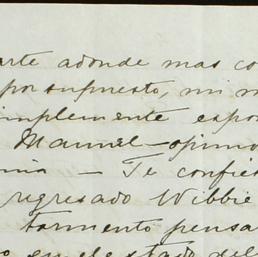 arte adonde mas co
por supuesto, mi m
implemente expo
Manuel - opino
nia - Te confie
regresado Wibbie
tormento pensa
o en el estado del